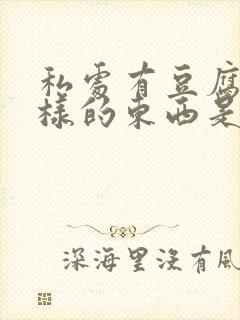 私處有豆腐
樣的東西是
深海里沒有風